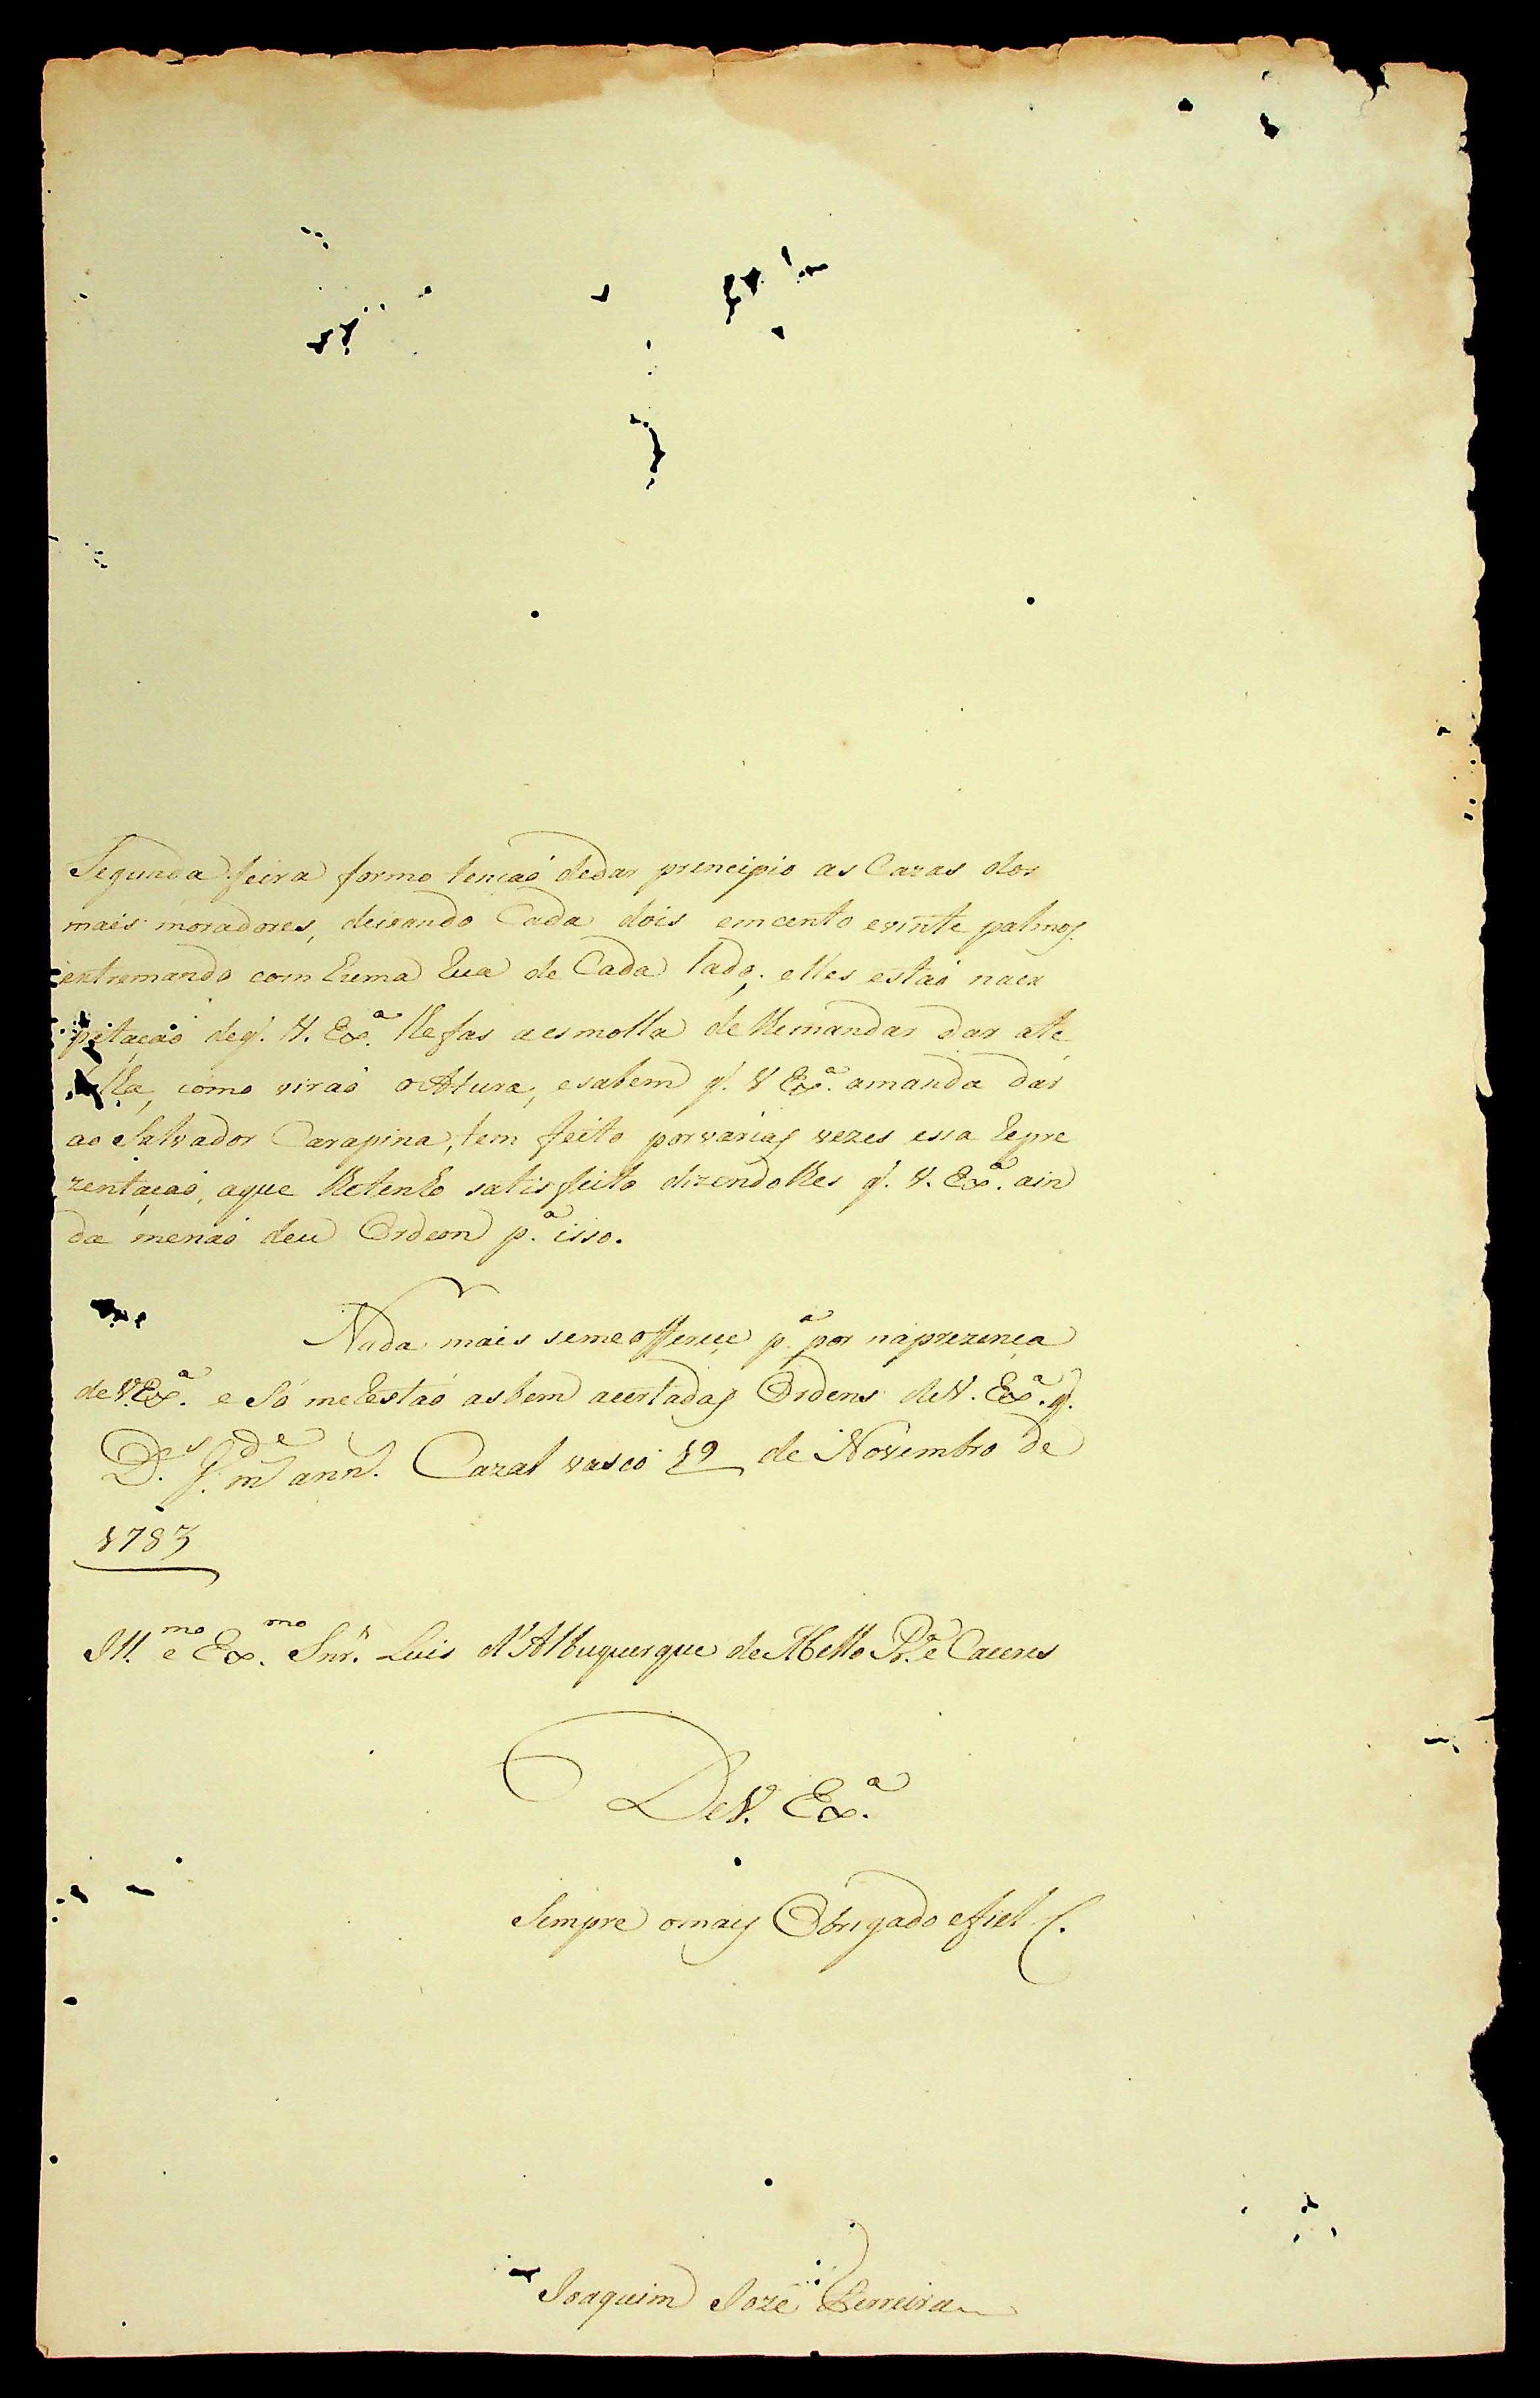 Segunda feira formo tençaó dedar principio as Cazas dos
mais moradores, deixando Cada dois em cento evinte palmos
extremando com huma Rua de Cada lado; elles estaó naex
pitaçaó deq'. V. Exª. lhefas aesmolla de lhemandar dar ate
lha, como viraó a altura, esabem q'. V Exª. amanda dar
ao Salvador Carapina, tem feito porvarias vezes essa repre
zentaçaó, aque lhetenho satisfeito dizendolhes q'. V. Exª. ain
da menaó deu Ordem pª. isso.
Nada mais seme offerece pª. por naprezença
de V. Exª. e Só me restaó asbem acertadas Ordens deV. Exª. q.
D.s g.de m.s ann.s Cazal vasco 19 de Novembro de
1783
Ill.mo e Ex.mo Snr. Luis d'Albuquerque de Mello Pr.ª e Caceres
DeV. Exª.
Sempre omais Obrigado efiel C.
Joaquim Jozé Ferreira